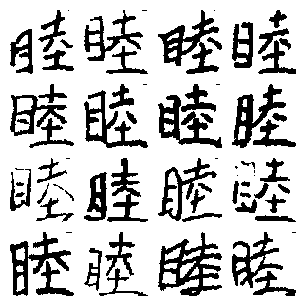 睦睦睦睦
睦睦睦睦
睦睦睦睦
睦睦睦睦